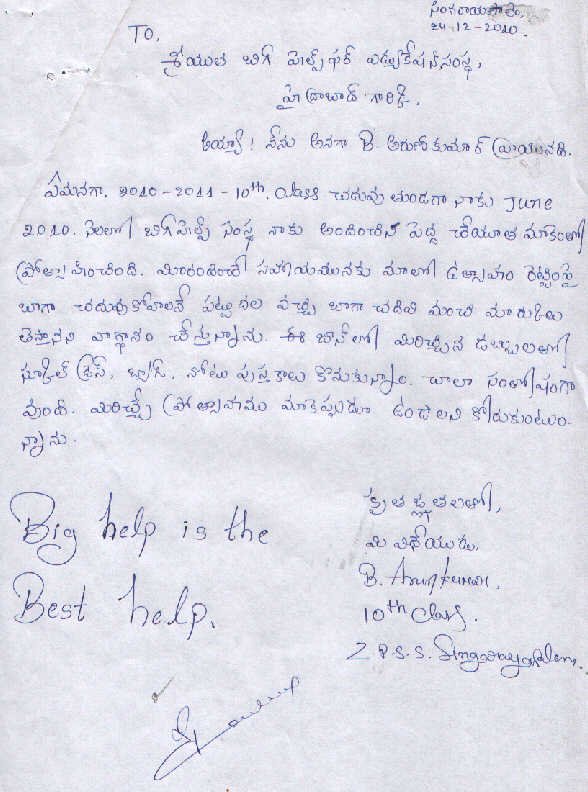 సింగరాయపాలెం,
24-12-2010.
TO,
శ్రీయుత బిగ్ హెల్ప్ ఫర్ ఎడ్యుకేషన్ సంస్థ,
హైద్రాబాద్ గారికి.
అయ్యా! నేను అనగా B. అరుణ్ కుమార్ వ్రాయునది.
ఏమనగా. 2010-2011-10th. చదువు చుండగా నాకు June
2010. నెలలో బిగ్ హెల్ప్ సంస్థ నాకు అందించిన పెద్ద చేయూత మాకెంతో
ప్రోత్సాహించింది. మీరందించే సహాయమునకు మాలో ఉత్సాహం రెట్టింపై
బాగా చదువుకోవాలనే పట్టుదల వచ్చి బాగా చదివి మంచి మార్కులు
తెస్తానని వాగ్దానం చేస్తున్నాను. ఈ జూన్ లో మీరిచ్చిన డబ్బులతో
స్కూల్ డ్రెస్, బ్యాగ్, నోటు పుస్తకాలు కొనుకున్నాం. చాలా సంతోషంగా
వుంది. మీరిచ్చే ప్రోత్సాహము మాకెప్పుడూ ఉండాలని కోరుకుంటుం-
న్నాను.
కృతజ్ఞతలతో,
మీ విధేయుడు,
B. Arun kumar.
10th Class.
Z.P.S.S. Singarayapalem.
Big help is the
Best help.